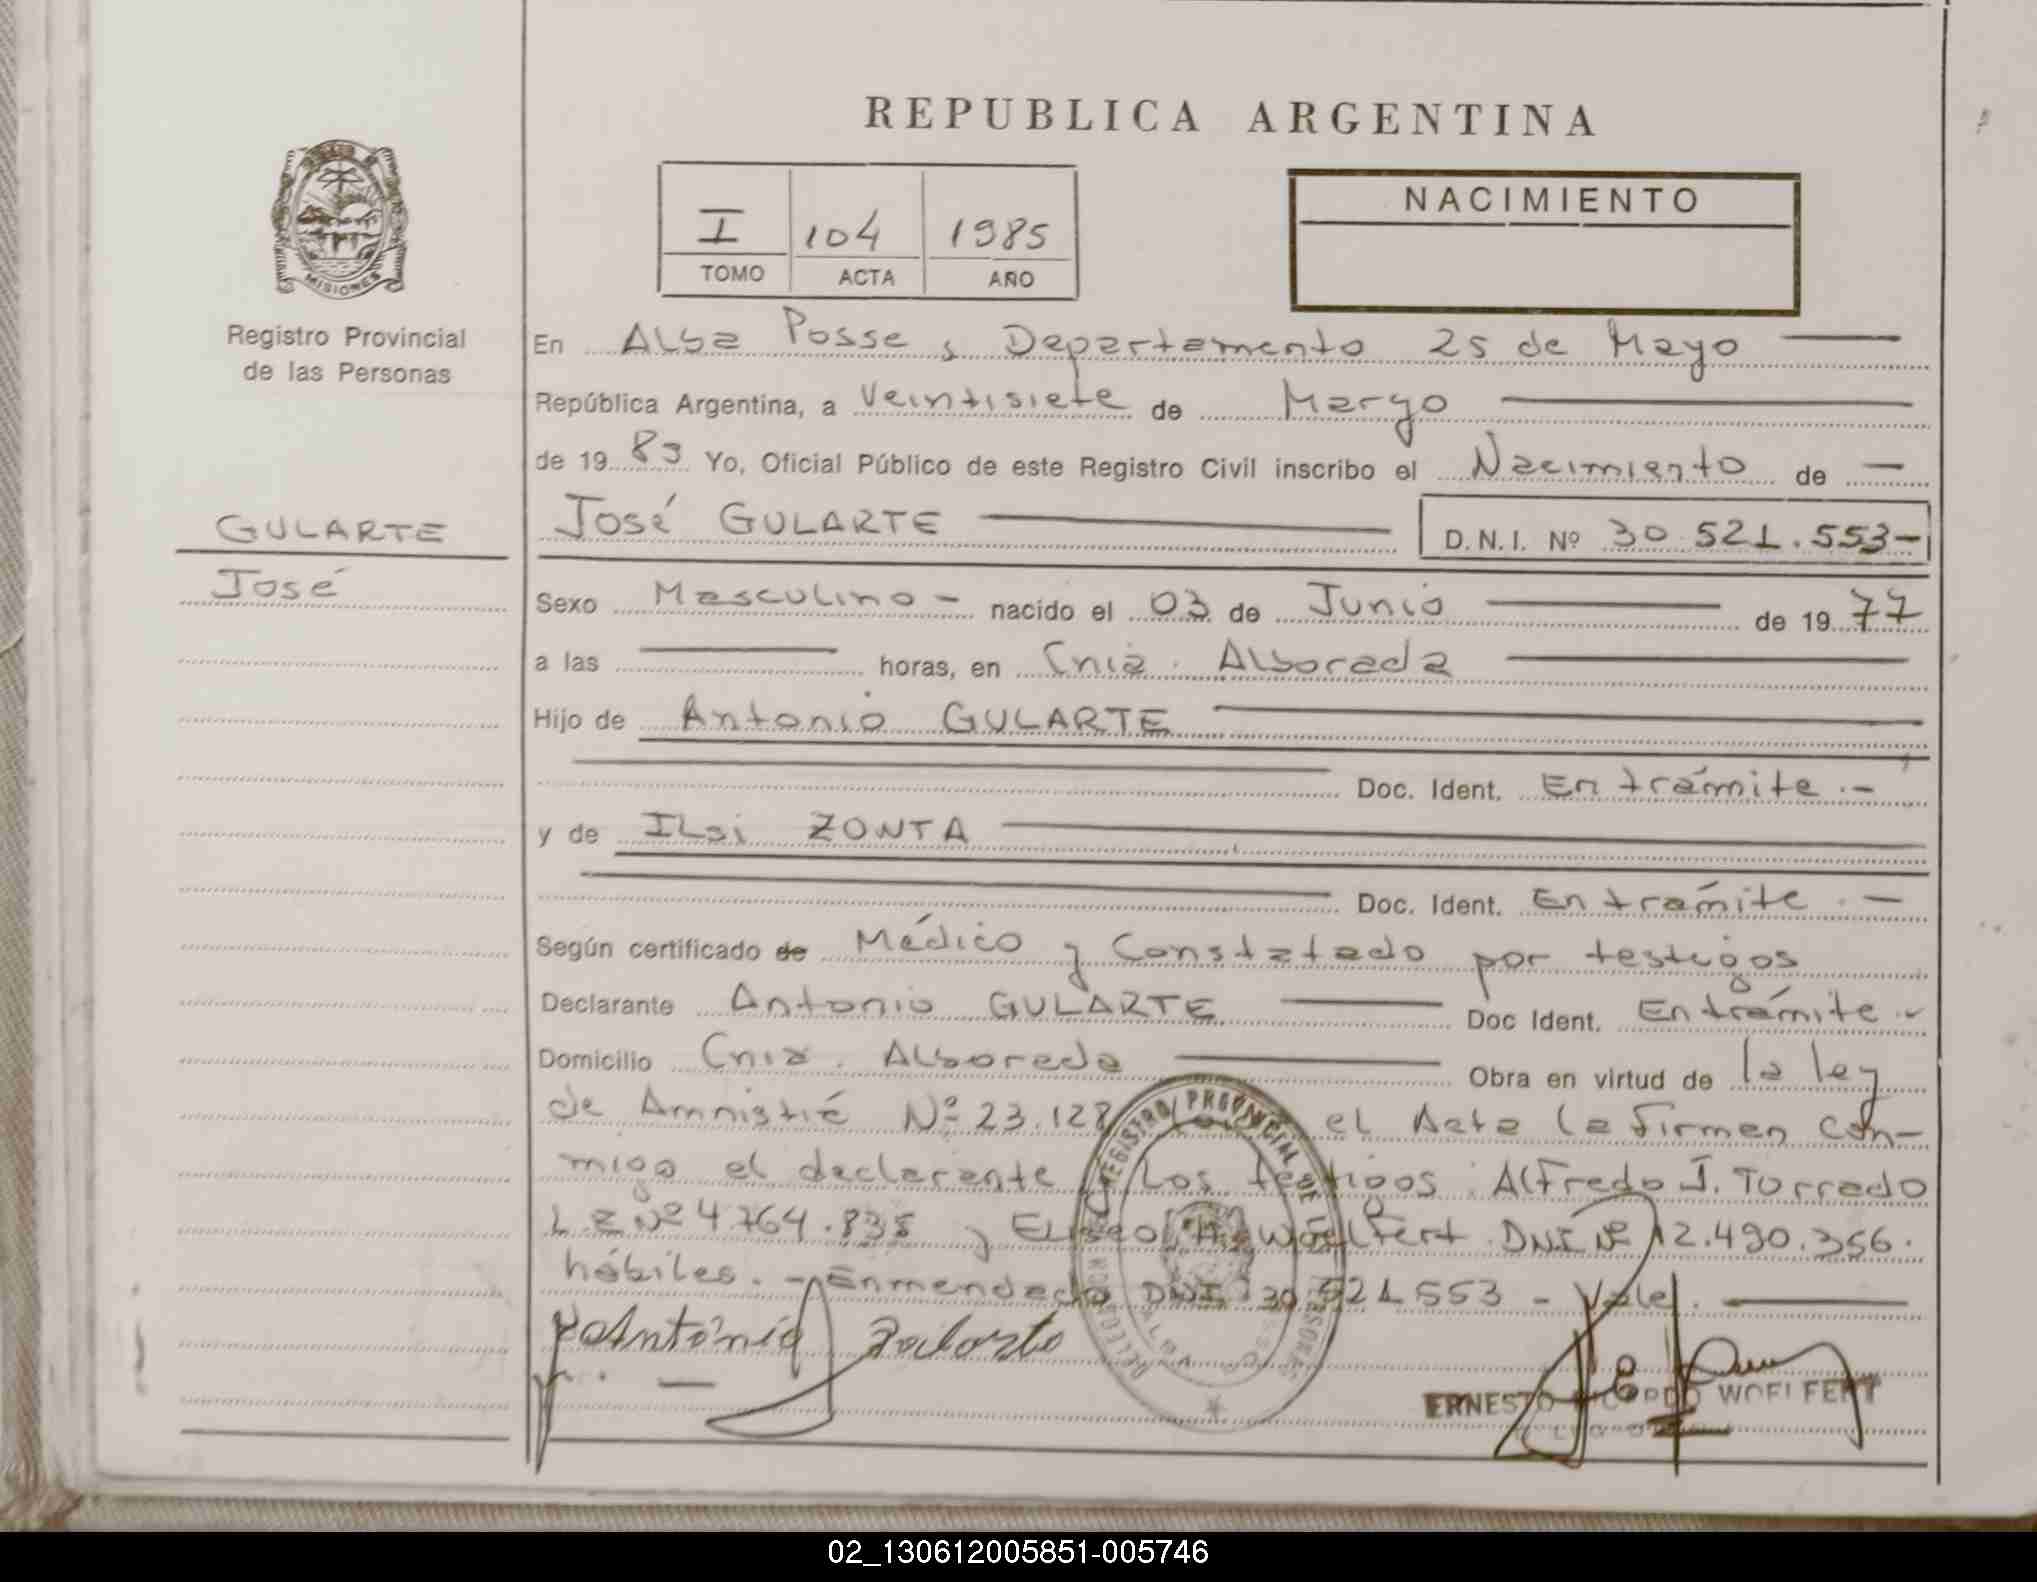 REPUBLICA ARGENTINA
MISIONES
Registro Provincial
de las Personas
I 104 1985
TOMO ACTA AÑO
NACIMIENTO
En Alba Posse, Departamento 25 de Mayo
República Argentina, a Veintisiete de Maryo
de 19 Yo, Oficial Público de este Registro Civil inscribo el Nacimiento de
GULARTE
José
José GULARTE D.N.I. Nº 30.521.553-
Sexo Masculino - nacido el 03 de Junio de 1977
a las horas, en Cnia. Alborada
Hijo de Antonio GULARTE
Doc. Ident. En trámite.-
y de ILsi ZONTA
Doc. Ident. En trámite.-
Según certificado de Médico y Constatado por testigos
Declarante Antonio GULARTE Doc Ident. En trámite.-
Domicilio Cnia. Alborada Obra en virtud de la ley
de Amnistié Nº 23.128 el Acta la firman con-
migo el declarante Los testigos: Alfredo J. Torrado
L.E Nº 4.764.838 y Eliseo Woelfert DNI Nº 12.490.356.
hábiles. - Enmendado DNI 30 521 553 - Vale.
REGISTRO PROVINCIAL DE
Antonio
ERNESTO WOELFERT
02_130612005851-005746